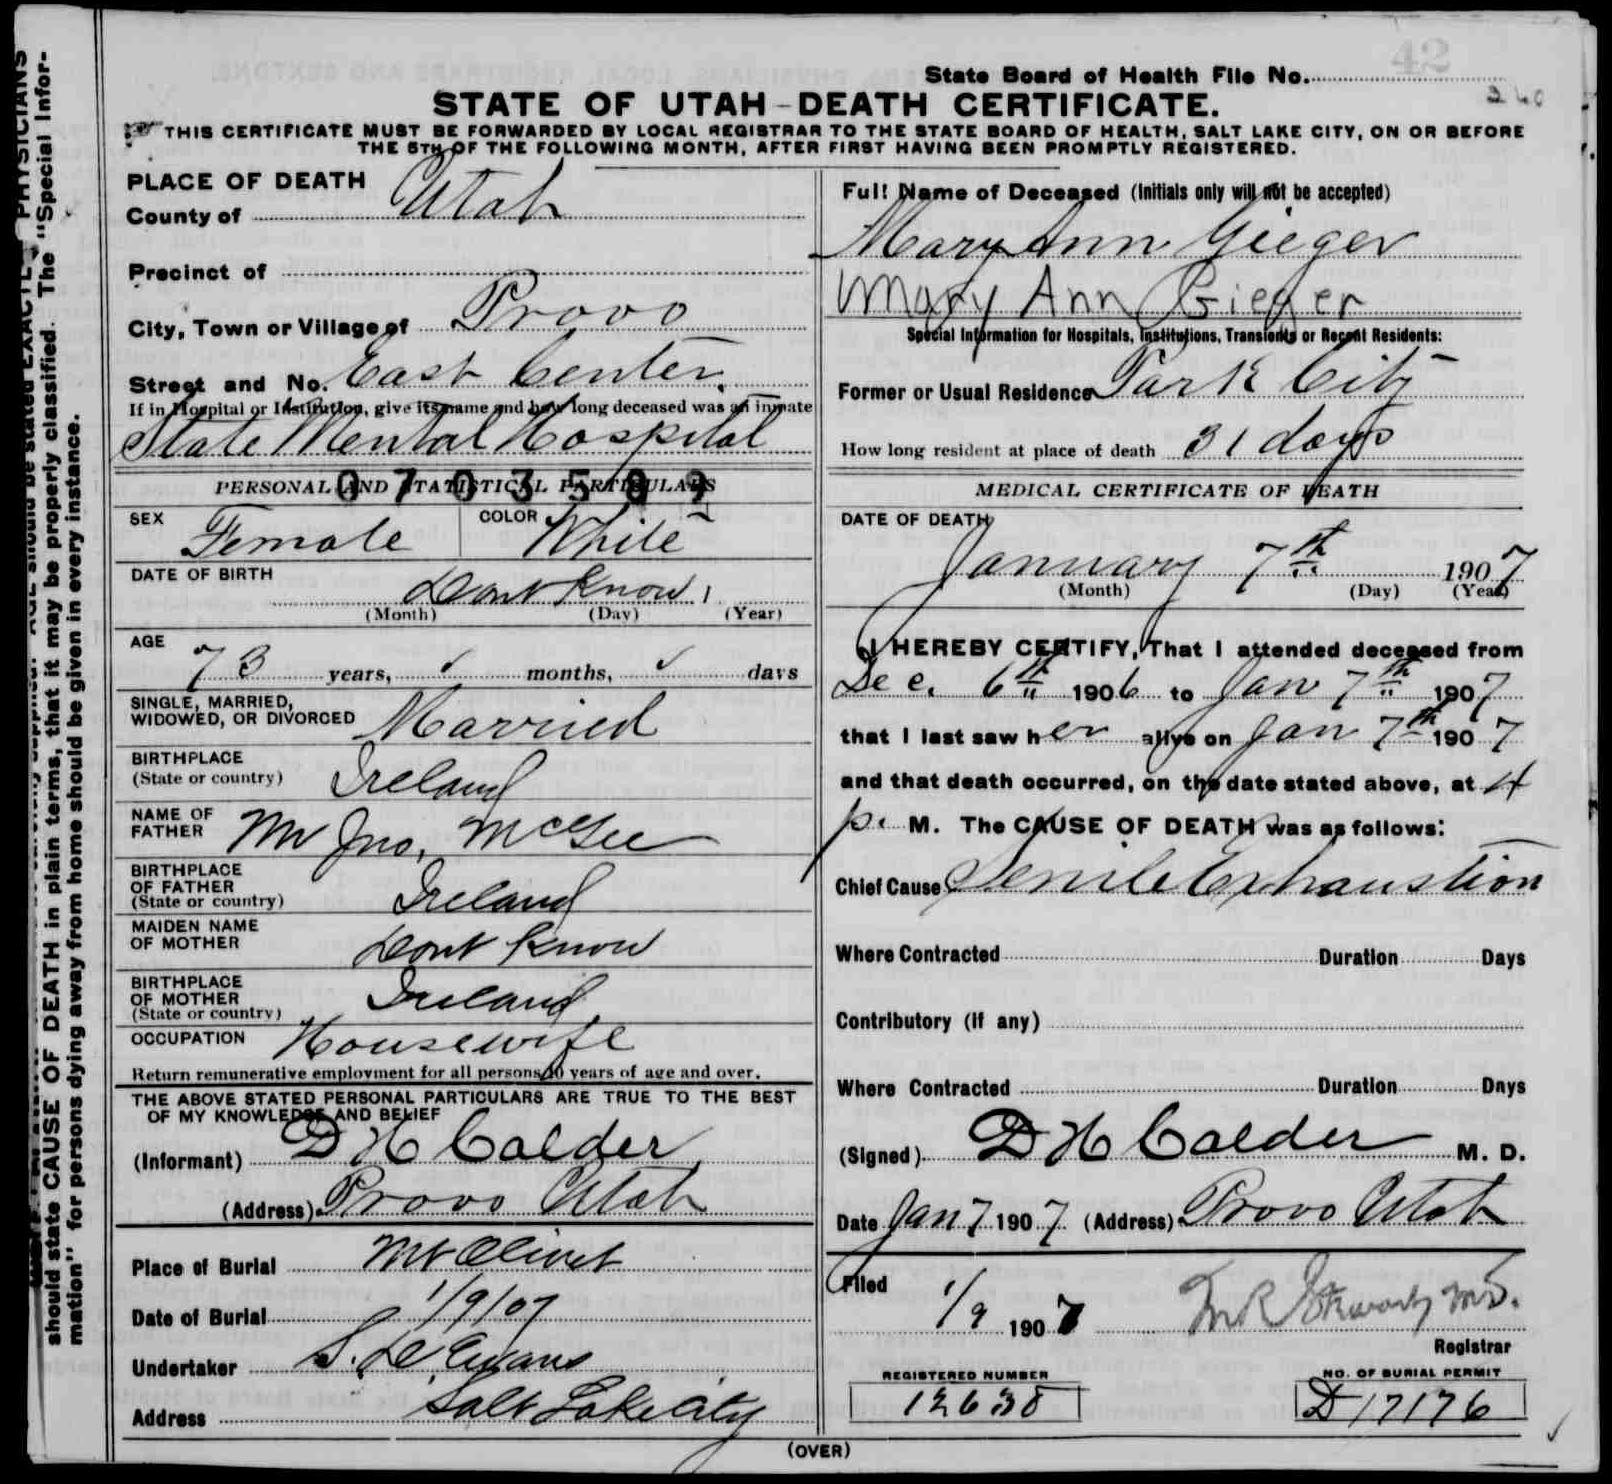 State Board of Health File No.
42
260
STATE OF UTAH-DEATH CERTIFICATE.
THIS CERTIFICATE MUST BE FORWARDED BY LOCAL REGISTRAR TO THE STATE BOARD OF HEALTH, SALT LAKE CITY, ON OR BEFORE
THE 5TH OF THE FOLLOWING MONTH, AFTER FIRST HAVING BEEN PROMPTLY REGISTERED.
PLACE OF DEATH
County of Utah
Precinct of
City, Town or Village of Provo
Street and No. East Center.
If in Hospital or Institution, give its name and how long deceased was an inmate
State Mental Hospital
PERSONAL AND STATISTICAL PARTICULARS
SEX Female COLOR White
DATE OF BIRTH Dont Know
(Month) (Day) (Year)
AGE 73 years, months, days
SINGLE, MARRIED,
WIDOWED, OR DIVORCED Married
BIRTHPLACE
(State or country) Ireland
NAME OF
FATHER Mr Jno, McGee
BIRTHPLACE
OF FATHER
(State or country) Ireland
MAIDEN NAME
OF MOTHER Dont Know
BIRTHPLACE
OF MOTHER
(State or country) Ireland
OCCUPATION Housewife
Return remunerative employment for all persons 10 years of age and over.
THE ABOVE STATED PERSONAL PARTICULARS ARE TRUE TO THE BEST
OF MY KNOWLEDGE AND BELIEF
(Informant) D H Calder
(Address) Provo Utah
Place of Burial Mt Olivet
Date of Burial 1/9/07
Undertaker S. D. Evans
Address Salt Lake City
Full Name of Deceased (Initials only will not be accepted)
Mary Ann Gieger
Mary Ann Gieger
Special Information for Hospitals, Institutions, Transients or Recent Residents:
Former or Usual Residence Park City
How long resident at place of death 31 days
MEDICAL CERTIFICATE OF DEATH
DATE OF DEATH
January 7th 1907
(Month) (Day) (Year)
I HEREBY CERTIFY, That I attended deceased from
Dec. 6th 1906 to Jan 7th 1907
that I last saw her alive on Jan 7th 1907
and that death occurred, on the date stated above, at 4
p. M. The CAUSE OF DEATH was as follows:
Chief Cause Senile Exhaustion
Where Contracted Duration Days
Contributory (if any)
Where Contracted Duration Days
(Signed) D H Calder M. D.
Date Jan 7 1907 (Address) Provo Utah
Filed
1/9 1907
Registrar
REGISTERED NUMBER
12638
NO. OF BURIAL PERMIT
D 17176
(OVER)
should state CAUSE OF DEATH in plain terms, that it may be properly classified. The "Special Infor-
mation" for persons dying away from home should be given in every instance.